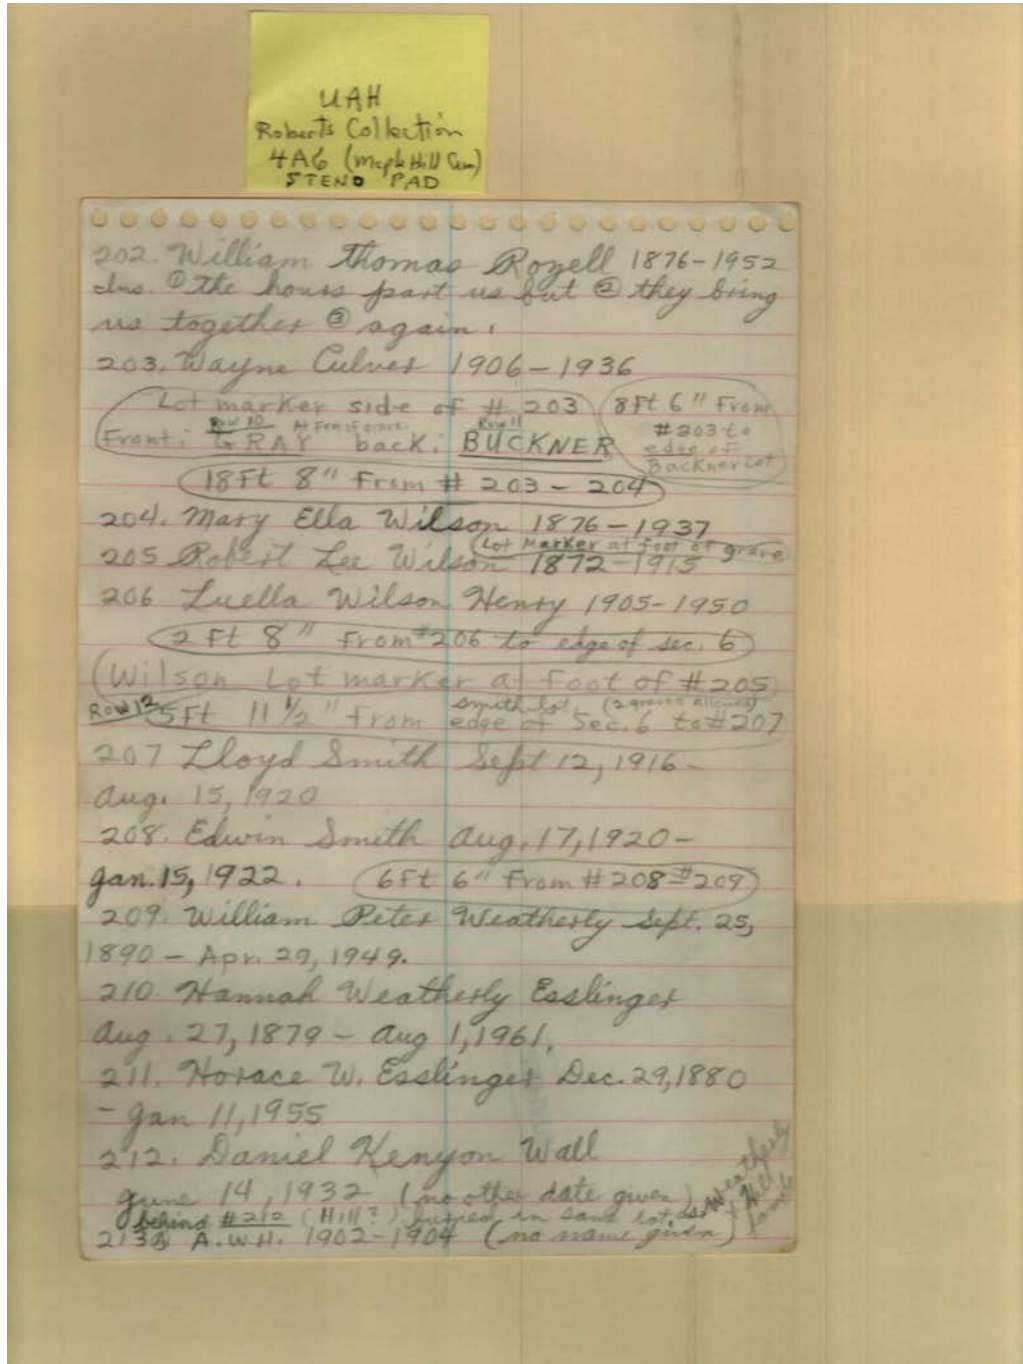 UAH
Roberts Collection
4A6 (Maple Hill Cem)
STENO PAD
202. William Thomas Rozell 1876-1952
Ins. ① The hours part us but ② they bring
us together ③ again.
203. Wayne Culver 1906-1936
Lot marker side of # 203
Row 10 At Foot of grave Row 11
Front: GRAY back: BUCKNER
8Ft 6" From
#203 to
edge of
Buckner Lot
18Ft 8" From # 203 - 204
204. Mary Ella Wilson 1876-1937
(Lot Marker at foot of grave)
205 Robert Lee Wilson 1872-1915
206 Luella Wilson Henry 1905-1950
2 Ft 8" From #206 to edge of sec. 6
(Wilson Lot marker at foot of #205)
Row 12 smith lot (2 graves allowed)
5Ft 11 1/2" From edge of Sec. 6 to #207
207 Lloyd Smith Sept 12, 1916-
Aug. 15, 1920
208. Edwin Smith Aug. 17, 1920-
Jan. 15, 1922. 6Ft 6" From #208-#209
209. William Peter Weatherly Sept. 25,
1890 - Apr. 29, 1949.
210. Hannah Weatherly Esslinger
Aug. 27, 1879 - Aug 1, 1961.
211. Horace W. Esslinger Dec. 29, 1880
- Jan 11, 1955
212. Daniel Kenyon Wall
June 14, 1932 (no other date given)
behind #212 (Hill?) buried in same lot as Weatherly
+ Hill
family
213 A.W.H. 1902-1904 (no name given)